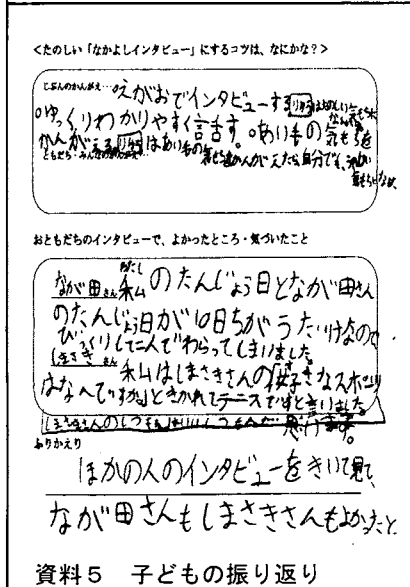 <たのしい「なかよしインタビュー」にするコツは、なにかな?>
じぶんのかんがえ…
○えがおでインタビューする りゆうは
○ゆっくりわかりやすく話す。○あいての気もちを
かんがえる りゆう はあいての 気もちをかんがえたら自分でも、
ともだち・みんなのかんがえ…
おともだちのインタビューで、よかったところ・気づいたこと
なが田さん 私のたんじょう日となが田さん
のたんじょう日が10日ちがうだけなので
びっくりして二人でわらってしまいました。
しまさきさん 私はしまさきさんの「好きなスポーツ
はなんですか」ときかれてテニスですと言いました。
しまさきさんのしつもんはいいしつもんだ 思います。
ふりかえり
ほかの人のインタビューをきいて見て、
なが田さんもしまさきさんもよかったと
資料5 子どもの振り返り